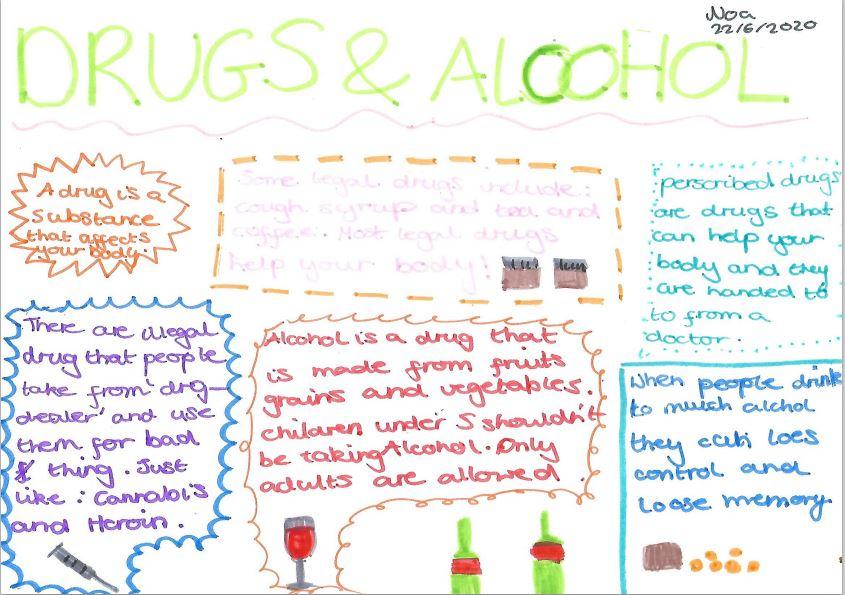 Noa
22/6/2020
DRUGS & ALCOHOL
A drug is a
substance
that affects
your body.
Some legal drugs include:
cough syrup and tea and
coffee. Most legal drugs
help your body!
perscribed drugs
are drugs that
can help your
body and they
are handed to
to from a
doctor.
There are illegal
drug that people
take from 'drg-
dealer' and use
them for bad
thing. Just
like: Cannabis
and Heroin.
Alcohol is a drug that
is made from fruits
grains and vegetables.
children under 5 shouldn't
be taking Alcohol. Only
adults are allowed.
When people drink
to much alchol
they can loes
control and
loose memory.